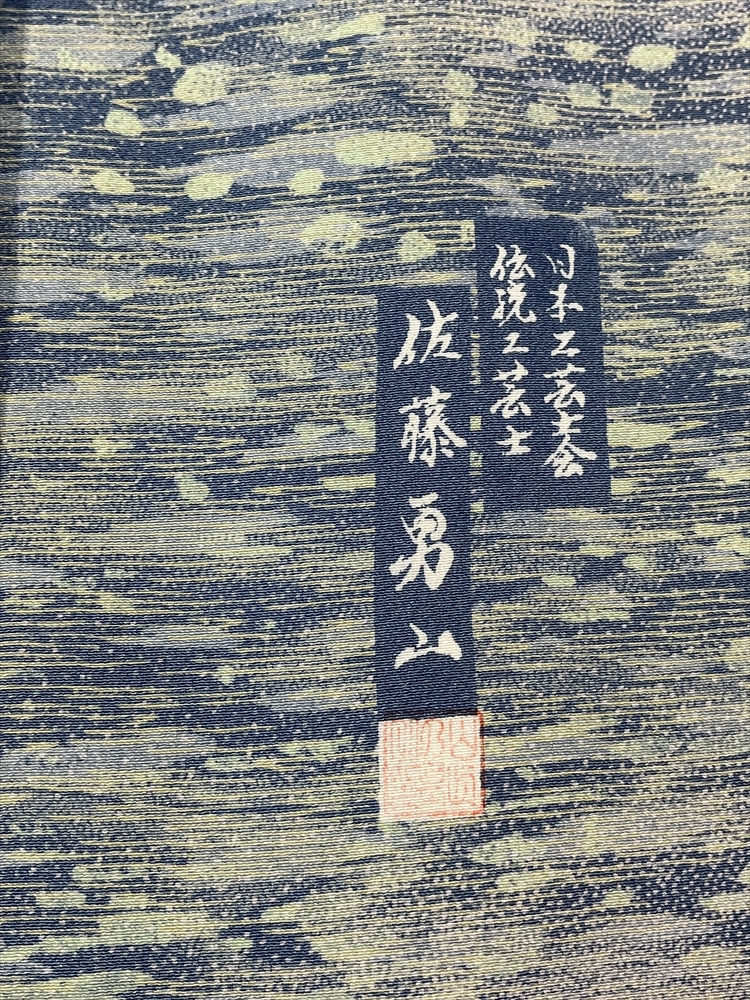 日本工芸会
伝統工芸士
佐藤勇山